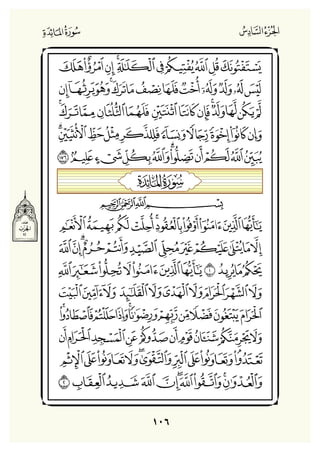 الجُزْءُ السَّادِسُ
سُورَةُ المَائِدَةِ
يَسْتَفْتُونَكَ قُلِ ٱللَّهُ يُفْتِيكُمْ فِي ٱلْكَلَـٰلَةِ ۚ إِنِ ٱمْرُؤٌا۟ هَلَكَ
لَيْسَ لَهُۥ وَلَدٌ وَلَهُۥٓ أُخْتٌ فَلَهَا نِصْفُ مَا تَرَكَ ۚ وَهُوَ يَرِثُهَآ إِن
لَّمْ يَكُن لَّهَا وَلَدٌ ۚ فَإِن كَانَتَا ٱثْنَتَيْنِ فَلَهُمَا ٱلثُّلُثَانِ مِمَّا تَرَكَ ۚ
وَإِن كَانُوٓا۟ إِخْوَةً رِّجَالًا وَنِسَآءً فَلِلذَّكَرِ مِثْلُ حَظِّ ٱلْأُنثَيَيْنِ ۗ
يُبَيِّنُ ٱللَّهُ لَكُمْ أَن تَضِلُّوا۟ ۗ وَٱللَّهُ بِكُلِّ شَىْءٍ عَلِيمٌۢ ١٧٦
سُورَةُ المَائِدَةِ
بِسْمِ ٱللَّهِ ٱلرَّحْمَـٰنِ ٱلرَّحِيمِ
يَـٰٓأَيُّهَا ٱلَّذِينَ ءَامَنُوٓا۟ أَوْفُوا۟ بِٱلْعُقُودِ ۚ أُحِلَّتْ لَكُم بَهِيمَةُ ٱلْأَنْعَـٰمِ
إِلَّا مَا يُتْلَىٰ عَلَيْكُمْ غَيْرَ مُحِلِّى ٱلصَّيْدِ وَأَنتُمْ حُرُمٌ ۗ إِنَّ ٱللَّهَ
يَحْكُمُ مَا يُرِيدُ ١ يَـٰٓأَيُّهَا ٱلَّذِينَ ءَامَنُوا۟ لَا تُحِلُّوا۟ شَعَـٰٓئِرَ ٱللَّهِ
وَلَا ٱلشَّهْرَ ٱلْحَرَامَ وَلَا ٱلْهَدْىَ وَلَا ٱلْقَلَـٰٓئِدَ وَلَآ ءَآمِّينَ ٱلْبَيْتَ
ٱلْحَرَامَ يَبْتَغُونَ فَضْلًا مِّن رَّبِّهِمْ وَرِضْوَٰنًا ۚ وَإِذَا حَلَلْتُمْ فَٱصْطَادُوا۟ ۚ
وَلَا يَجْرِمَنَّكُمْ شَنَـَٔانُ قَوْمٍ أَن صَدُّوكُمْ عَنِ ٱلْمَسْجِدِ ٱلْحَرَامِ أَن
تَعْتَدُوا۟ ۘ وَتَعَاوَنُوا۟ عَلَى ٱلْبِرِّ وَٱلتَّقْوَىٰ ۖ وَلَا تَعَاوَنُوا۟ عَلَى ٱلْإِثْمِ
وَٱلْعُدْوَٰنِ ۚ وَٱتَّقُوا۟ ٱللَّهَ ۖ إِنَّ ٱللَّهَ شَدِيدُ ٱلْعِقَابِ ٢
١٠٦